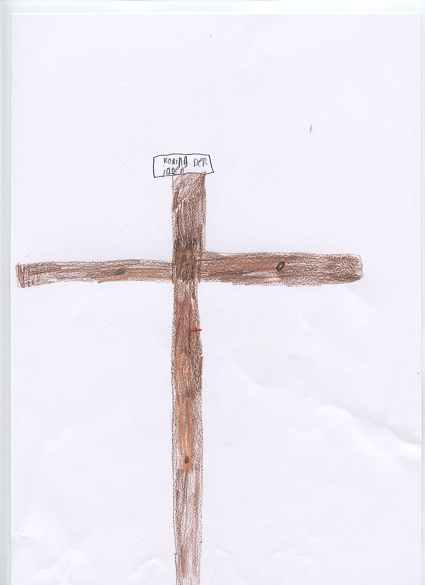 KONING DER
JODEN